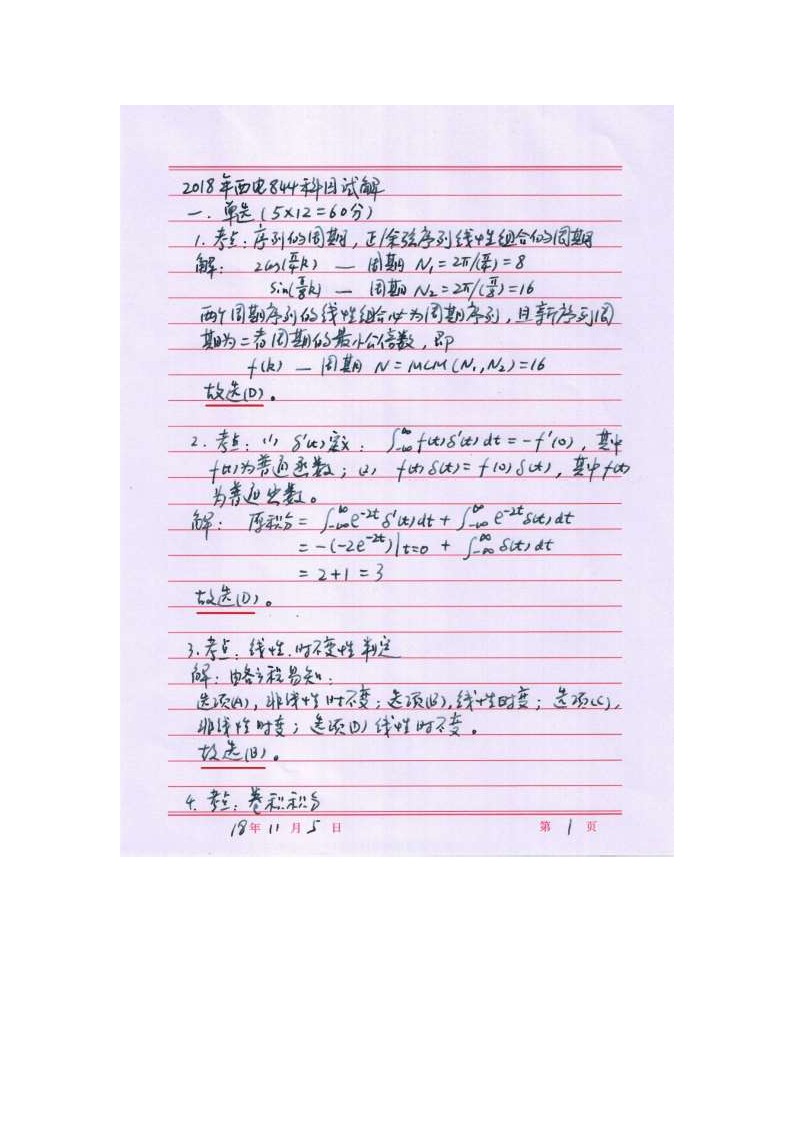 2018年西电844科目试解
一. 单选 (5×12=60分)
1. 考点: 序列的周期, 正/余弦序列线性组合的周期
解: 2cos(π/4 k) — 周期 N₁=2π/(π/4)=8
sin(π/8 k) — 周期 N₂=2π/(π/8)=16
两个周期序列的线性组合必为周期序列, 且新序列周
期为二者周期的最小公倍数, 即
f(k) — 周期 N=MCM(N₁,N₂)=16
故选(D)。
2. 考点: (1) δ'(t)定义: ∫_{-∞}^{∞} f(t)δ'(t)dt=-f'(0), 其中
f(t)为普通函数; (2) f(t)δ(t)=f(0)δ(t), 其中f(t)
为普通函数。
解: 原积分=∫_{-∞}^{∞} e^{-2t}δ'(t)dt+∫_{-∞}^{∞} e^{-2t}δ(t)dt
=-(-2e^{-2t})|_{t=0} + ∫_{-∞}^{∞} δ(t)dt
=2+1=3
故选(D)。
3. 考点: 线性、时不变性判定
解: 由各方程易知:
选项(A), 非线性时不变; 选项(B), 线性时变; 选项(C),
非线性时变; 选项(D) 线性时不变。
故选(B)。
4. 考点: 卷积积分
18年11月5日 第1页